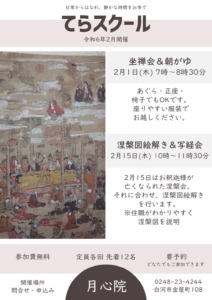 日常からはなれ、静かな時間をお寺で
てらスクール
令和6年2月開催
坐禅会＆朝がゆ
2月1日(木) 7時～8時30分
あぐら・正座・
椅子でもOKです。
座りやすい服装で
お越しください。
涅槃図絵解き＆写経会
2月15日(木) 10時～11時30分
2月15日はお釈迦様が
亡くなられた涅槃会。
それに合わせ、涅槃図絵解き
を行います。
※住職がわかりやすく
涅槃図を説明
参加費無料
定員各回 先着12名
要予約
どなたでもご参加できます
開催場所
問合せ・申込み
月心院
0248-23-4244
白河市金屋町108